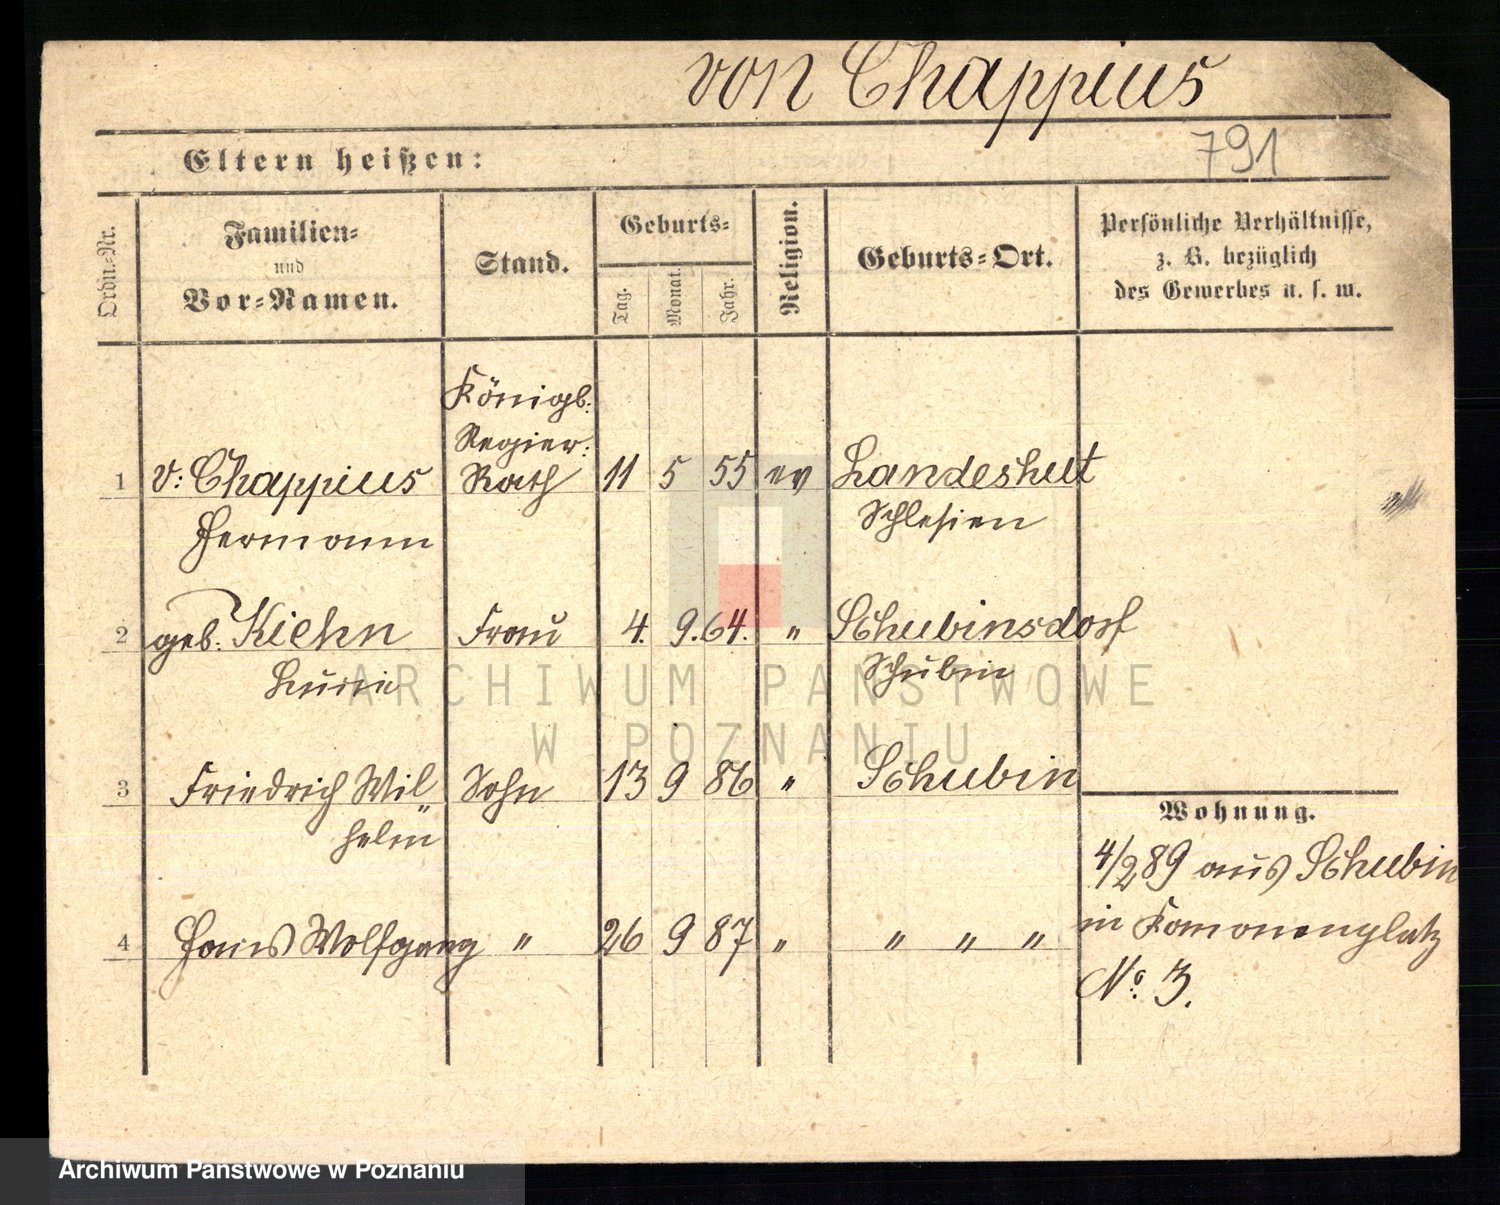 von Chappius
791
Eltern heißen:
Ordn.-Nr.
Familien-
und
Vor-Namen.
Stand.
Geburts-
Tag.
Monat.
Jahr.
Religion.
Geburts-Ort.
Persönliche Verhältnisse,
z. B. bezüglich
des Gewerbes u. s. w.
Königl.
Regier.
1 v: Chappius Rath 11 5 55 ev Landeshut
Hermann Schlesien
2 geb. Kiehn Frau 4. 9. 64. " Schubinsdorf
Schubin
3 Friedrich Wil= Sohn 13 9 86 " Schubin
helm
4 Hans Wolfgang " 26 9 87 " " " "
Wohnung.
4/2 89 aus Schubin
in Kanonenplatz
No. 3.
ARCHIWUM PAŃSTWOWE
W POZNANIU
Archiwum Państwowe w Poznaniu